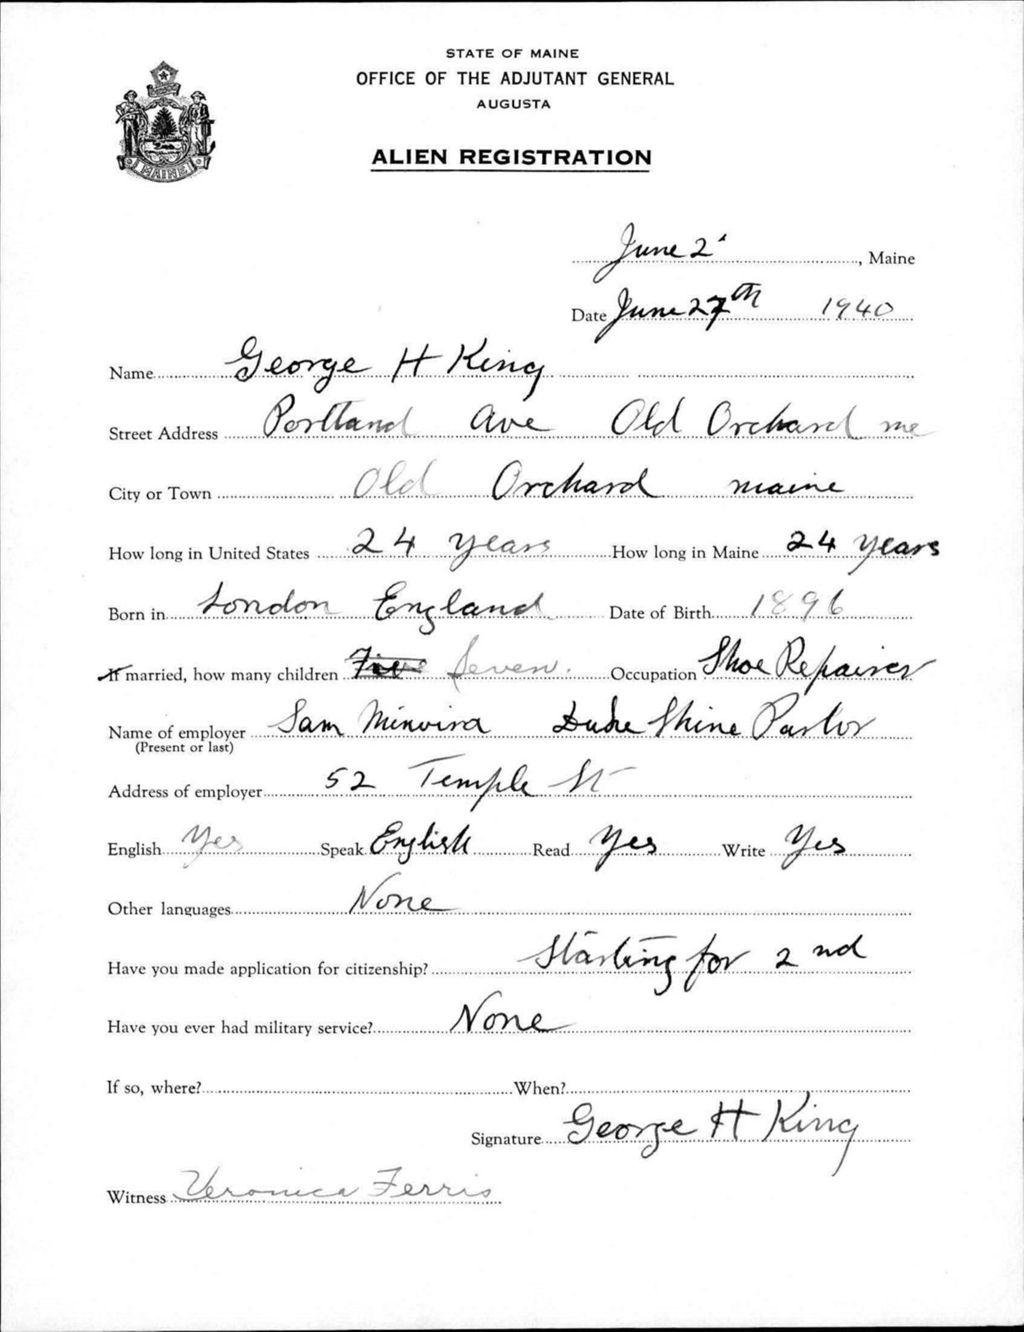 STATE OF MAINE
OFFICE OF THE ADJUTANT GENERAL
AUGUSTA
ALIEN REGISTRATION
MAINE
June 2, Maine
Date June 27th 1940
Name George H King
Street Address Portland Ave Old Orchard me
City or Town Old Orchard maine
How long in United States 24 years How long in Maine 24 years
Born in London England Date of Birth 1896
If married, how many children Five Seven. Occupation Shoe Repairer
Name of employer Sam Shine Parlor
(Present or last)
Address of employer 52 Temple St
English Yes Speak English Read Yes Write Yes
Other languages None
Have you made application for citizenship? Starting for 2nd
Have you ever had military service? None
If so, where? When?
Signature George H King
Witness Veronica Ferris